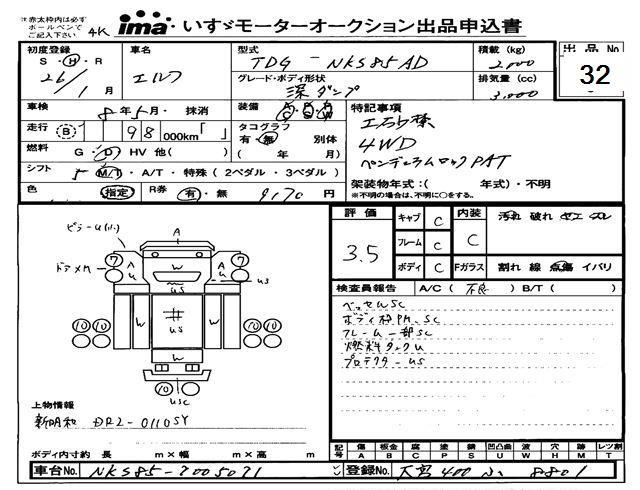 ※赤太枠内は必ず
ボールペンで
ご記入下さい。
4K
ima いすゞモーターオークション出品申込書
初度登録 車名 型式 積載 (kg) 出品 No
S・H・R 26/1月 エルフ TDG - NKS85AD 2,000 32
グレード・ボディ形状 深ダンプ 排気量 (cc) 3,000
車検 8年5月・ 抹消 装備 特記事項
走行 B 98 000km「 」 タコグラフ 有・無 別体
燃料 G・D・HV 他( ) ( 年 月)
4WD
シフト 5 M/T・A/T・特殊 (2ペダル・3ペダル) ペンデュラムロックPAT
色 指定 R券 有・無 9,170 円 架装物年式:( 年式)・不明
※不明の場合は、不明に○をする。
評価 3.5 キャブ C 内装 C 汚れ 破れ
フレーム C
ボディ C Fガラス 割れ 線 点傷 イバリ
検査員報告 A/C ( 不良 ) B/T ( )
ベッセルSC
フレーム一部SC
燃料タンクU
プロテクターUS
ドアメU
A
A
U
U
W
US
US
W
W
7
7
10
10
10
10
10
USC
上物情報
新明和 DR2-0110SY
ボディ内寸約 長 m×幅 m×高 m
記号 傷 板金 腐 塗 錆 凹凸曲 波 穴 跡 レツ割
A B C P S U W H M T
車台No. NKS85-7005071 登録No. 大宮 400 8801